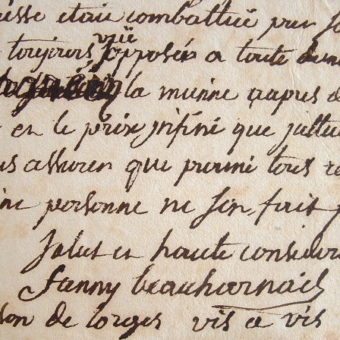 esse etait combattue par
toujours vüe opposés a toute
la mienne aupres d
et le prix infini que j'attac
us assurer que parmi tous
ne personne ne s'en fait
Salut et haute consider
fanny beauharnais
son de lorges vis a vis